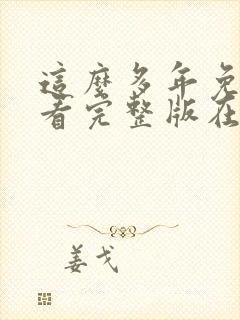 這麼多年免
看完整版在
姜戈